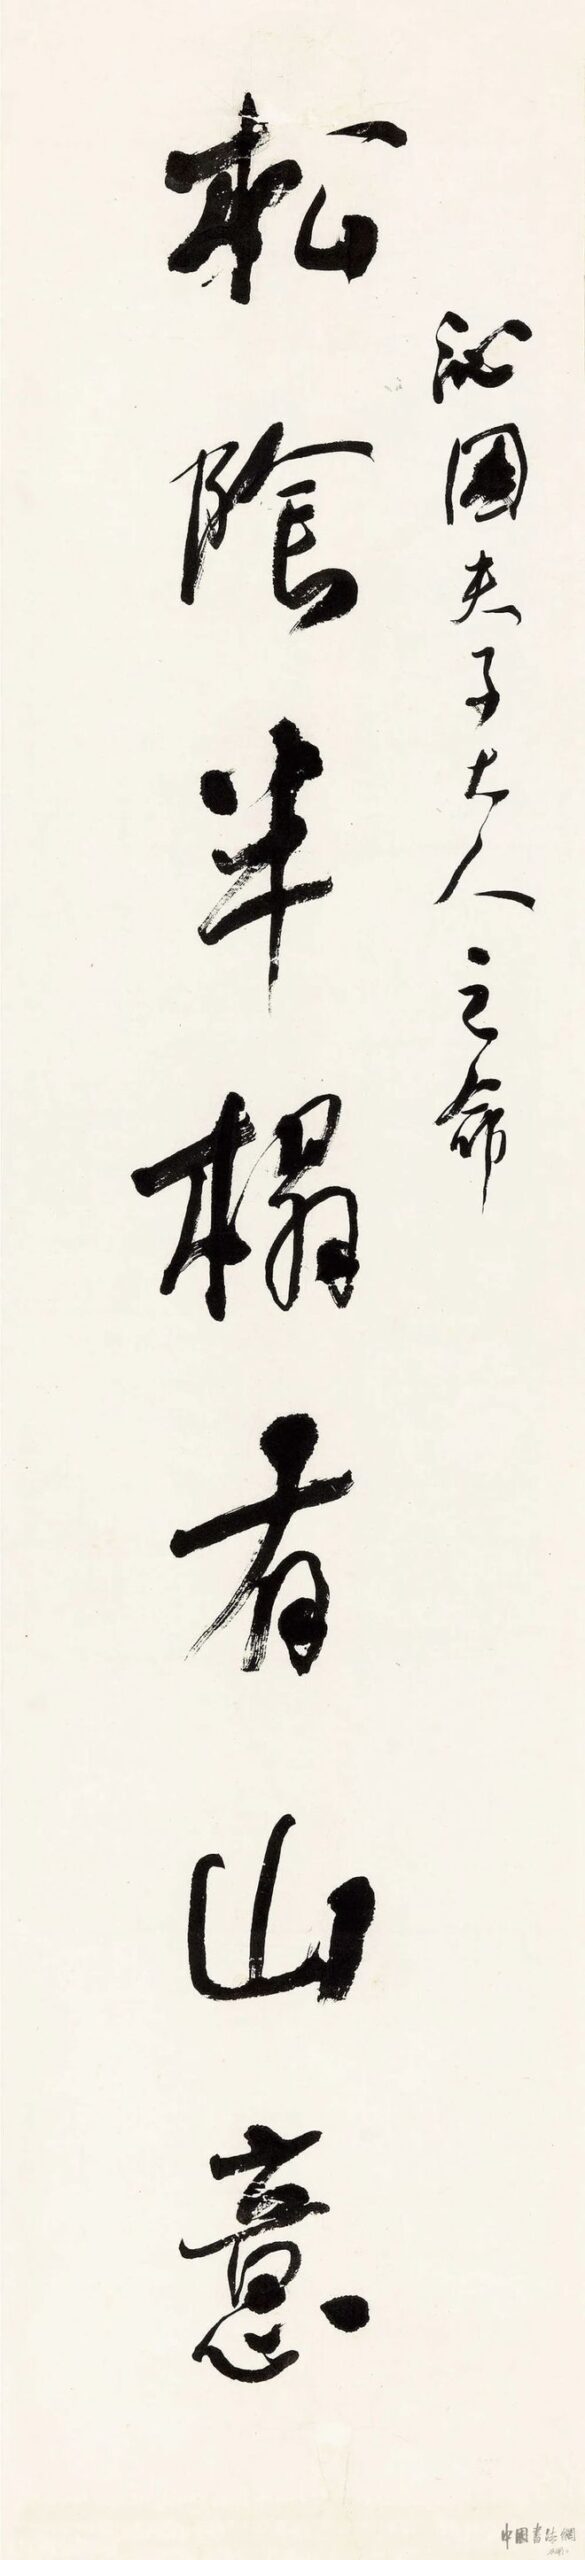 沁園夫子大人之命
松陰半榻有山意
中國書法網